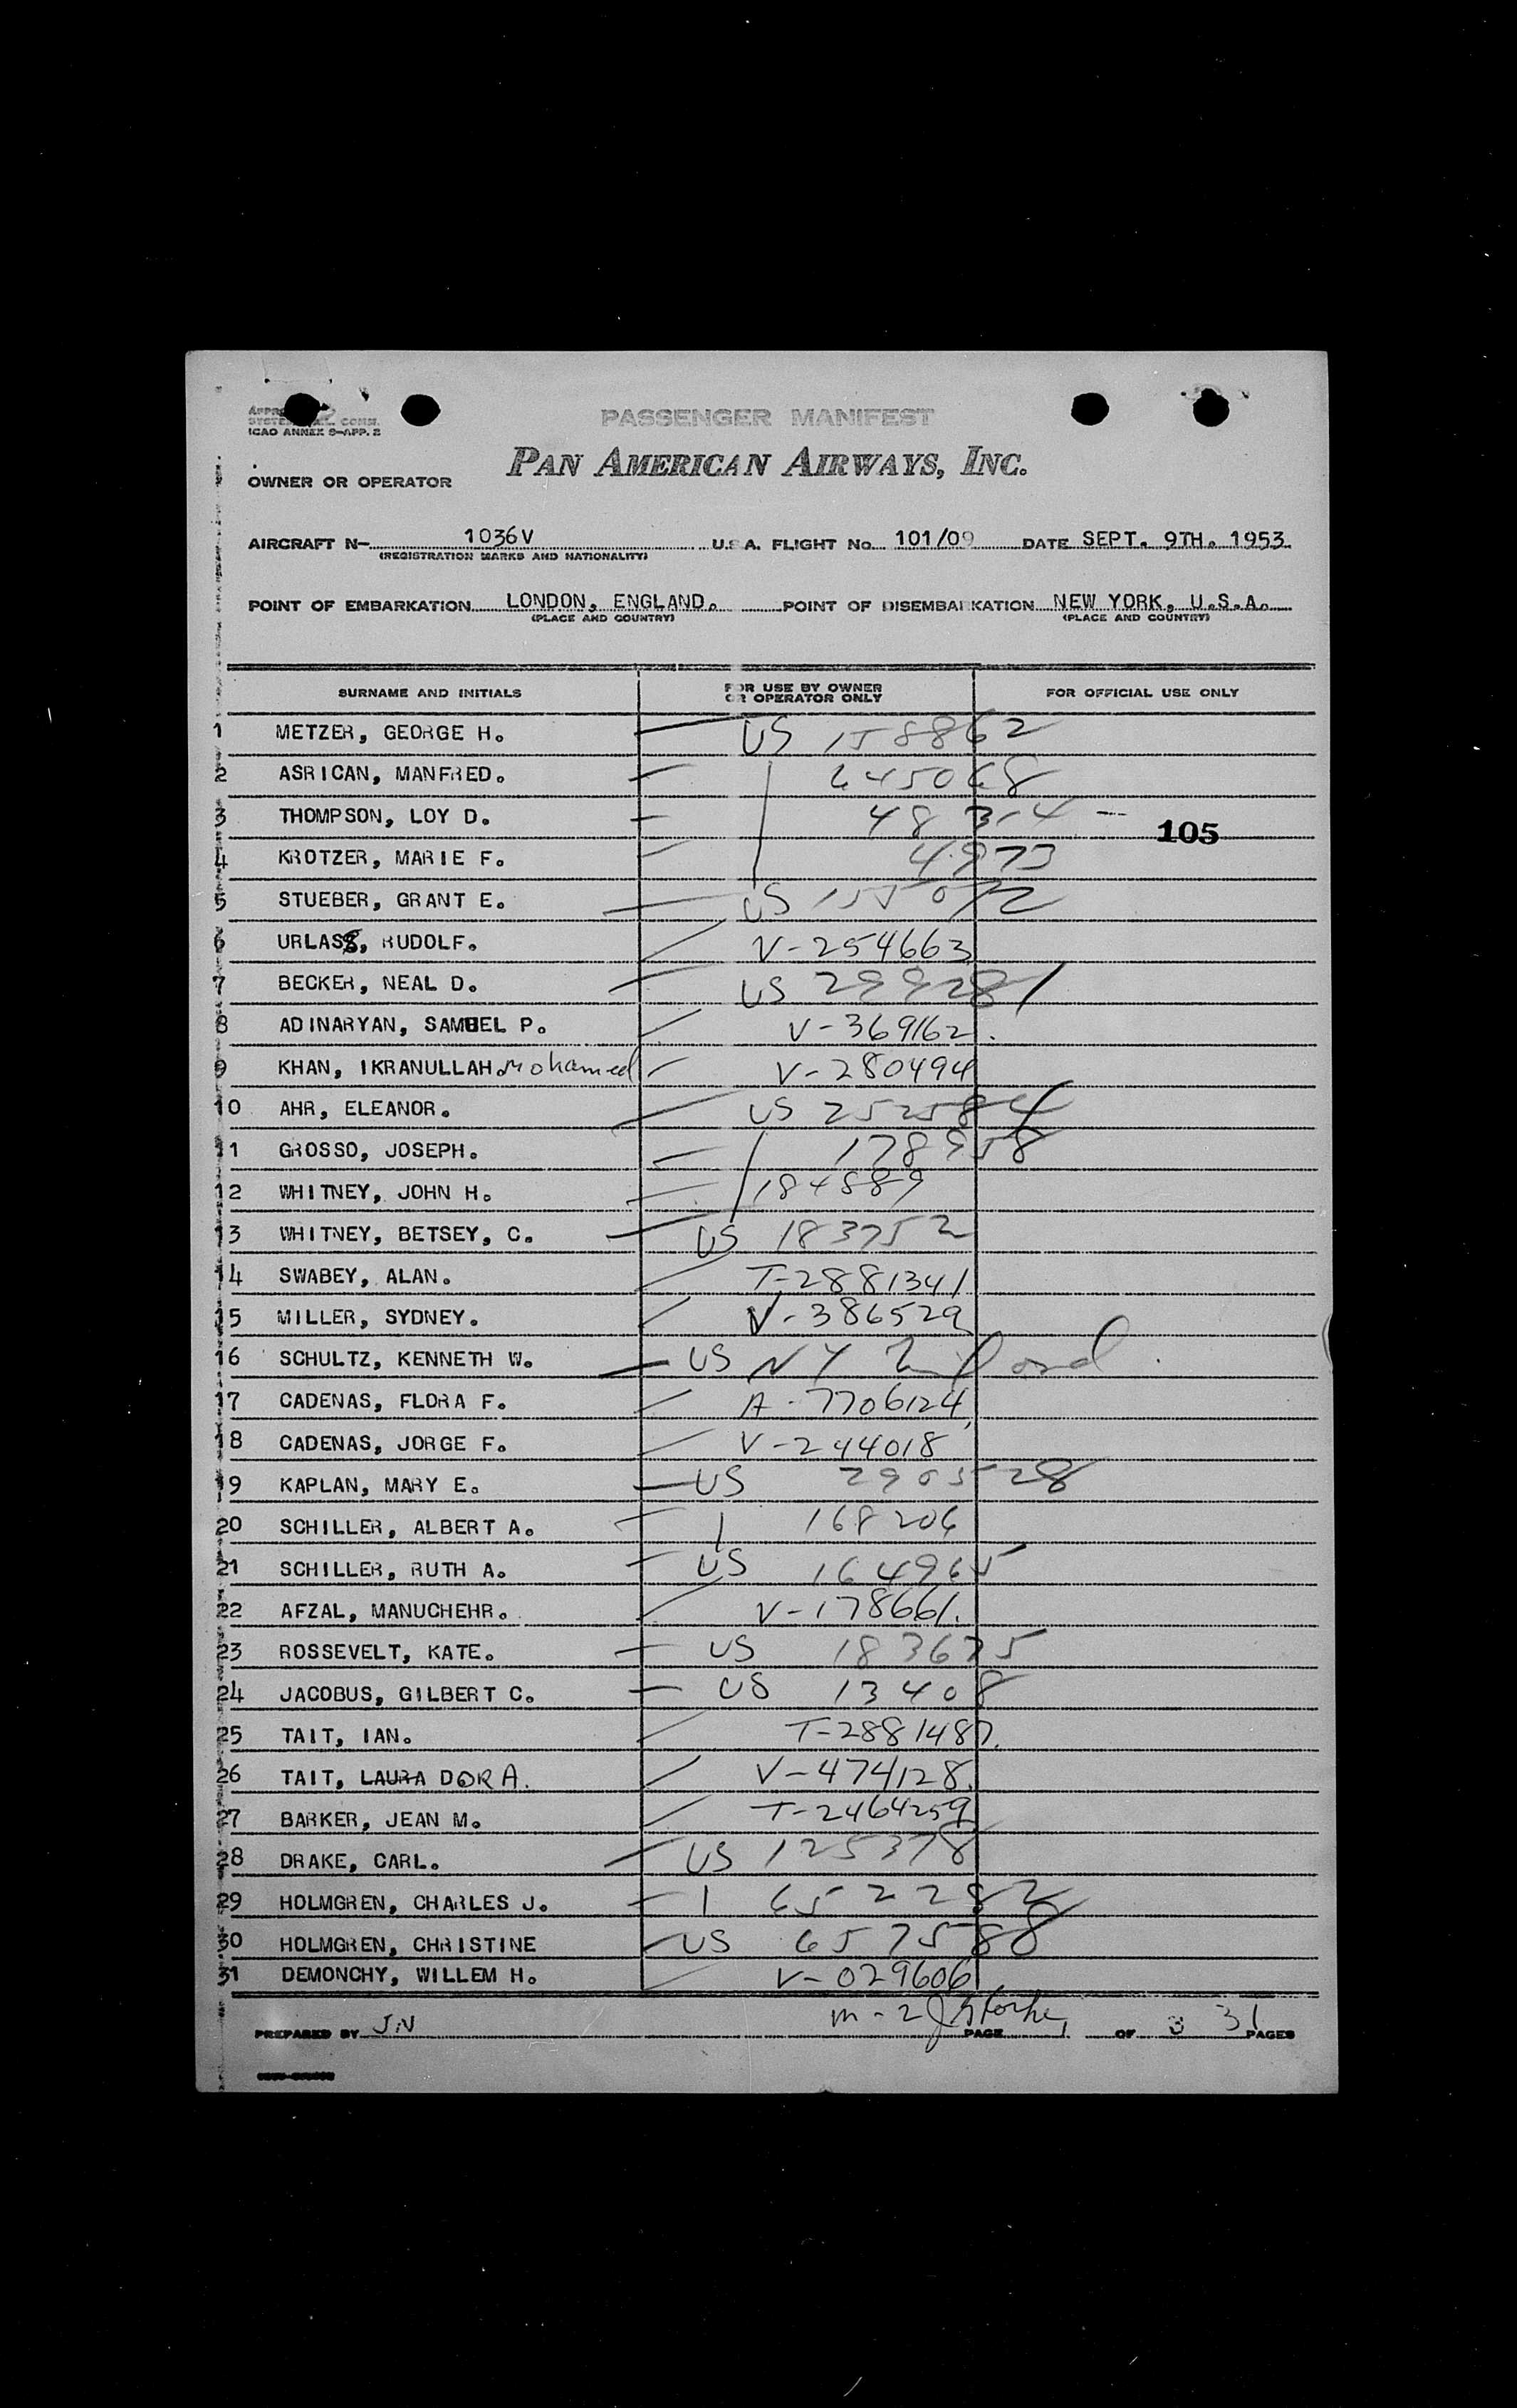 PASSENGER MANIFEST
ICAO ANNEX 9-APP. 2
PAN AMERICAN AIRWAYS, INC.
OWNER OR OPERATOR
AIRCRAFT N- 1036V U.S.A. FLIGHT No. 101/09 DATE SEPT. 9TH. 1953
(REGISTRATION MARKS AND NATIONALITY)
POINT OF EMBARKATION LONDON, ENGLAND. POINT OF DISEMBARKATION NEW YORK, U.S.A.
(PLACE AND COUNTRY) (PLACE AND COUNTRY)
SURNAME AND INITIALS FOR USE BY OWNER OR OPERATOR ONLY FOR OFFICIAL USE ONLY
1 METZER, GEORGE H. US 158862
2 ASRICAN, MANFRED. 645068
3 THOMPSON, LOY D. 48314
105
4 KROTZER, MARIE F. 4973
5 STUEBER, GRANT E. US 155072
6 URLASS, RUDOLF. V-254663
7 BECKER, NEAL D. US 299281
8 ADINARYAN, SAMUEL P. V-369162.
9 KHAN, IKRANULLAH Mohamed V-280494
10 AHR, ELEANOR. US 252584
11 GROSSO, JOSEPH. 178958
12 WHITNEY, JOHN H. 184889
13 WHITNEY, BETSEY, C. US 183752
14 SWABEY, ALAN. T-2881341
15 MILLER, SYDNEY. V-386529
16 SCHULTZ, KENNETH W. US NY
17 CADENAS, FLORA F. A-7706124
18 CADENAS, JORGE F. V-244018
19 KAPLAN, MARY E. US 290528
20 SCHILLER, ALBERT A. 168206
21 SCHILLER, RUTH A. US 164965
22 AFZAL, MANUCHEHR. V-178661.
23 ROSSEVELT, KATE. US 183675
24 JACOBUS, GILBERT C. US 13408
25 TAIT, IAN. T-2881487.
26 TAIT, LAURA DORA. V-474128.
27 BARKER, JEAN M. T-2464259
28 DRAKE, CARL. US 125378
29 HOLMGREN, CHARLES J. 652282
30 HOLMGREN, CHRISTINE US 657588
31 DEMONCHY, WILLEM H. V-029606
m-2
PREPARED BY JN PAGE 1 OF 3 31 PAGES